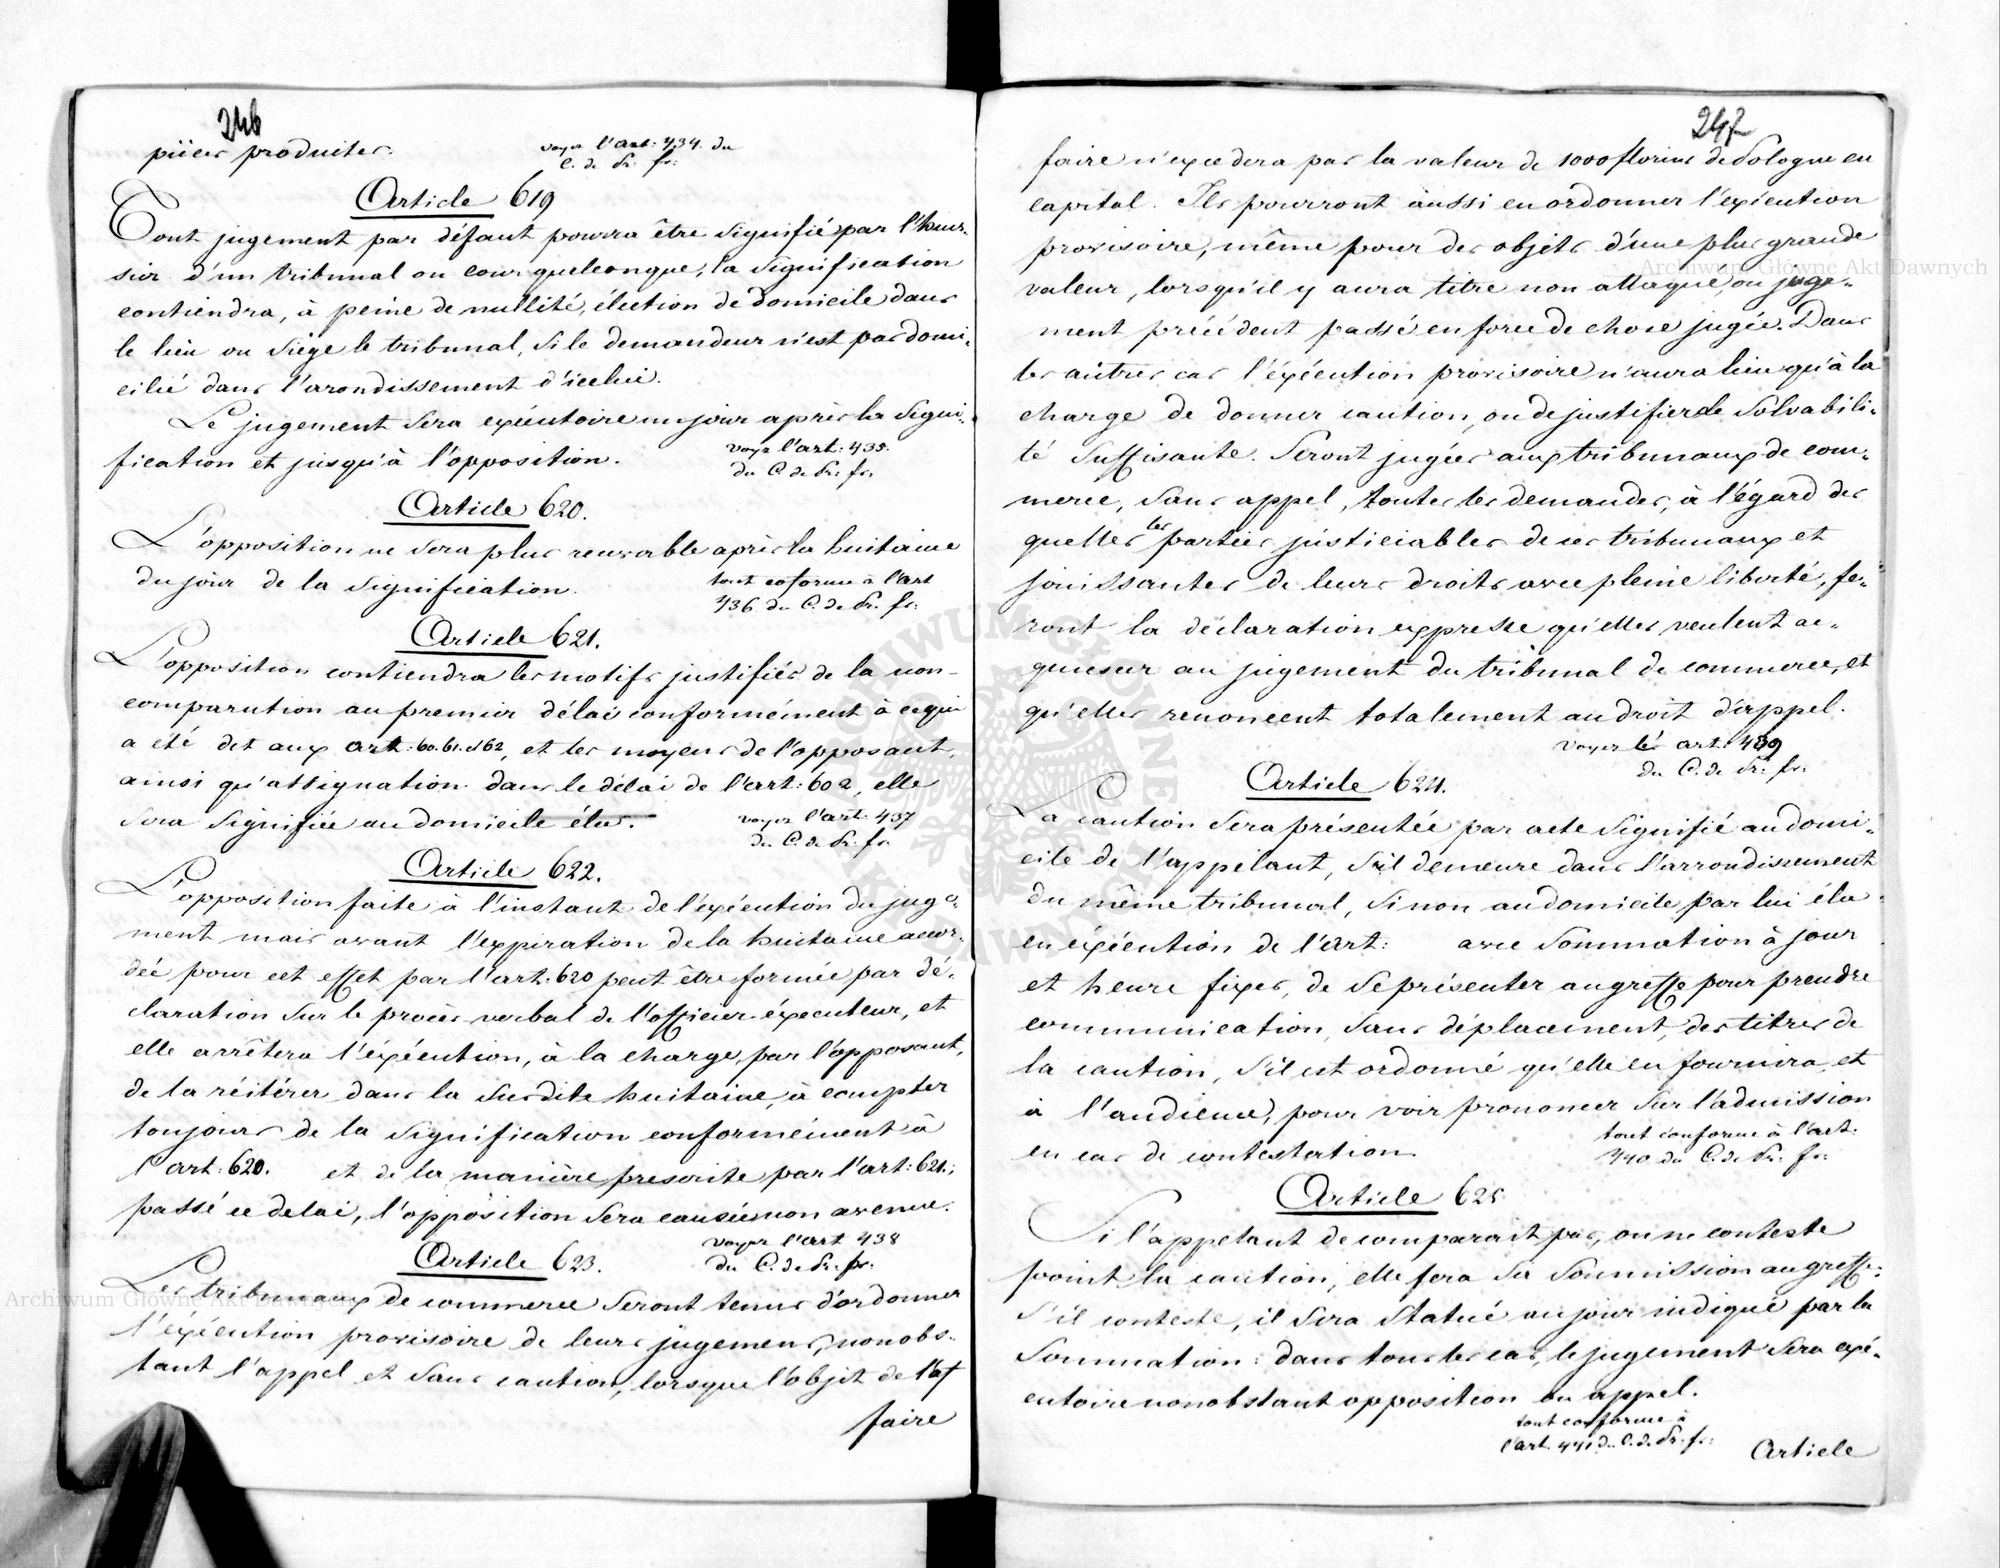 246
pièces produites.
voyez l'art: 434. du
C. de Pr: fr:
Article 619
Tout jugement par défaut pourra être signifié par l'huis-
sier d'un tribunal ou cour quelconque, la signification
contiendra, à peine de nullité, élection de domicile dans
le lieu ou siège le tribunal, si le demandeur n'est pas domi-
cilié dans l'arondissement d'icelui.
Le jugement sera exécutoire un jour après la signi-
fication et jusqu'à l'opposition.
voyez l'art: 435.
du C. de Pr: fr.
Article 620.
L'opposition ne sera plus recevable après la huitaine
du jour de la signification.
tout conforme à l'art
436 du C. de Pr. fr:
Article 621.
L'opposition contiendra les motifs justifiés de la non-
comparution au premier délai conformément à ce qui
a été dit aux art: 60. 61. et 62, et les moyens de l'opposant,
ainsi qu'assignation dans le délai de l'art: 602, elle
sera signifiée au domicile élu.
voyez l'art: 437
du C. de Pr. fr.
Article 622.
L'opposition faite à l'instant de l'exécution du juge-
ment mais avant l'expiration de la huitaine accor-
dée pour cet effet par l'art: 620 peut être formée par dé-
claration sur le procès verbal de l'officier exécuteur, et
elle arrêtera l'exécution, à la charge, par l'opposant,
de la réitérer dans la susdite huitaine, à compter
toujours de la signification conformément à
l'art: 620. et de la manière prescrite par l'art: 621.;
passé ce delai, l'opposition sera censée non avenue.
voyez l'art 438
du C. de Pr. fr:
Article 623.
Les tribunaux de commerce seront tenus d'ordonner
l'exécution provisoire de leurs jugemens, nonobs-
tant l'appel et sans caution, lorsque l'objet de l'af
faire
247
faire n'excedera pas la valeur de 1000 florins de Pologne en
capital. Ils pourront aussi en ordonner l'exécution
provisoire, même pour des objets d'une plus grande
valeur, lorsqu'il y aura titre non attaqué, ou juge-
ment précédent passé en force de chose jugée. Dans
les autres cas l'exécution provisoire n'aura lieu qu'à la
charge de donner caution, ou de justifier de solvabili-
té suffisante. Seront jugées aux tribunaux de com-
merce, sans appel, toutes les demandes, à l'égard des
quelles les parties justiciables de ces tribunaux et
jouissantes de leurs droits avec pleine liberté, fe-
ront la déclaration expresse qu'elles veulent ac-
quiescer au jugement du tribunal de commerce, et
qu'elles renoncent totalement au droit d'appel.
voyez les art: 439
du C. de Pr. fr:
Article 624.
La caution sera présentée par acte signifié au domi-
cile de l'appelant, s'il demeure dans l'arrondissement
du même tribunal, sinon au domicile par lui élu
en exécution de l'art: avec sommation à jour
et heure fixes, de se présenter au greffe pour prendre
communication, sans déplacement, des titres de
la caution, s'il est ordonné qu'elle en fournira, et
à l'audience, pour voir prononcer sur l'admission
en cas de contestation.
tout conforme à l'art:
440 du C. de Pr. fr:
Article 625
Si l'appelant de comparait pas, ou ne conteste
point la caution, elle fera sa soumission au greffe:
s'il conteste, il sera statué au jour indiqué par la
sommation: dans tous les cas, le jugement sera exé-
cutoire nonobstant opposition ou appel.
tout conforme à
l'art. 441 du C. de Pr. fr:
Article
Archiwum Główne Akt Dawnych
Archiwum Główne Akt Dawnych
ARCHIWUM GŁÓWNE AKT DAWNYCH